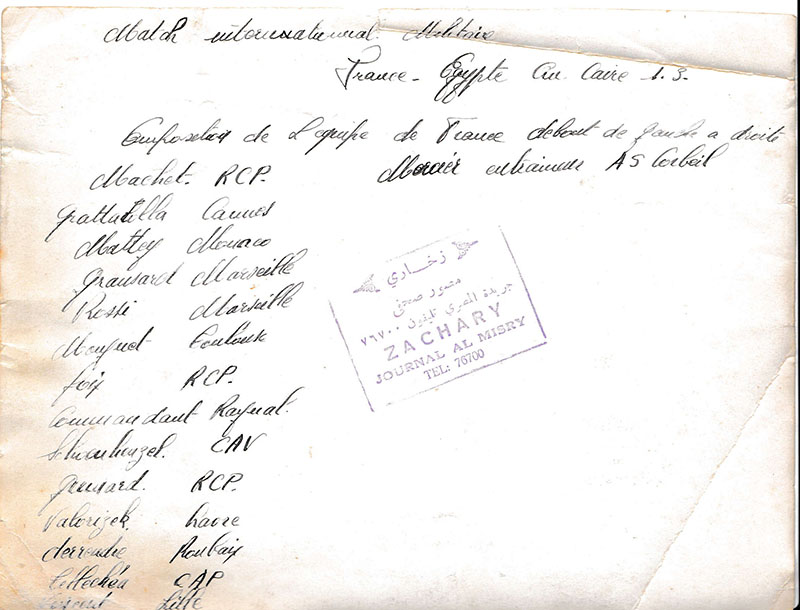 Match international Militaire
France - Egypte Au Caire 1.3.
Composition de l'equipe de France debout de gauche a droite
Machet. RCP. Mercier entraineur AS Corbeil
Grattarolla Cannes
Mattey Monaco
Gransard Marseille
Rossi Marseille
Mouynet Toulouse
Foix RCP.
Commandant Raynal.
CAV
Gonsard. RCP.
Valorizek. havre
derroudre Roubaix
CAP
Lille
زخاري
مصور صحفي
جريدة المصري تليفون ٧٦٧٠٠
ZACHARY
JOURNAL AL MISRY
TEL: 76700